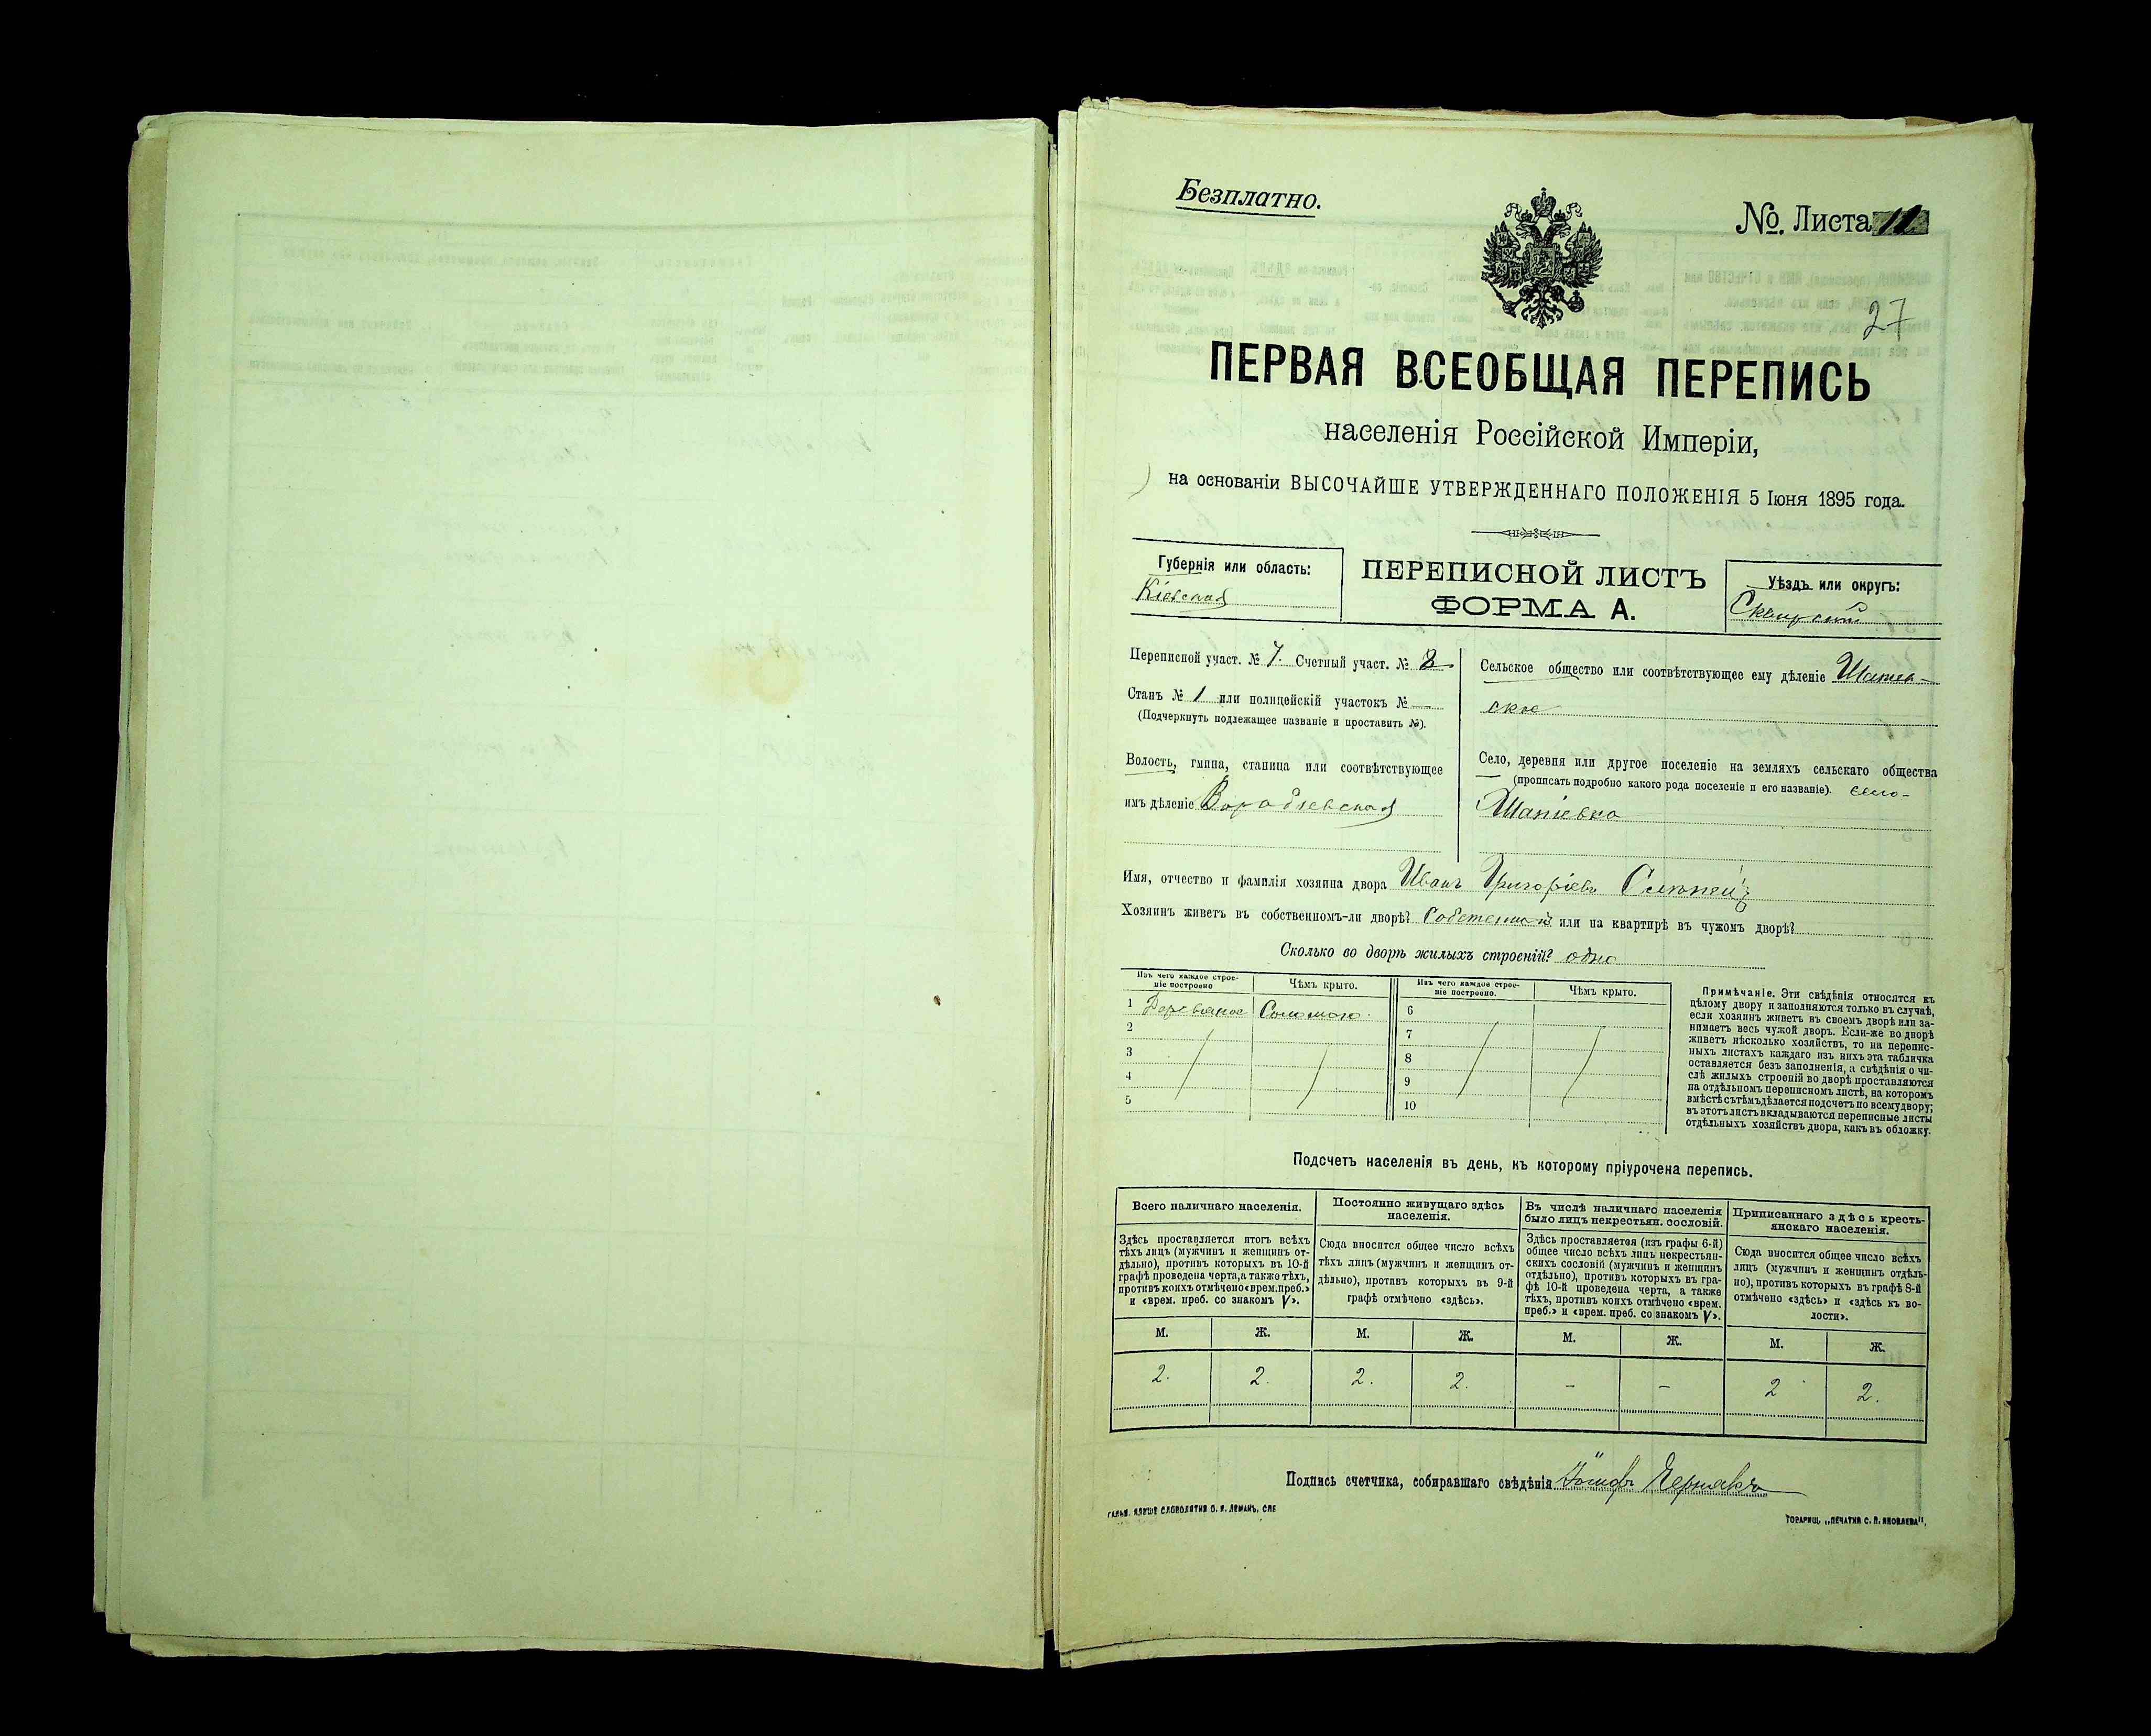 Безплатно.
№. Листа 11
27
ПЕРВАЯ ВСЕОБЩАЯ ПЕРЕПИСЬ
населенія Россійской Имперіи,
на основаніи ВЫСОЧАЙШЕ УТВЕРЖДЕННАГО ПОЛОЖЕНІЯ 5 Іюня 1895 года.
Губернія или область:
Кіевская
ПЕРЕПИСНОЙ ЛИСТЪ
ФОРМА А.
Уѣздъ или округъ:
Сквирскій
Переписной участ. № 7. Счетный участ. № 2
Станъ № 1 или полицейскій участокъ № —
(Подчеркнуть подлежащее названіе и проставить №).
Волость, гмина, станица или соотвѣтствующее
имъ дѣленіе
Сельское общество или соотвѣтствующее ему дѣленіе
ское
Село, деревня или другое поселеніе на земляхъ сельскаго общества
(прописать подробно какого рода поселеніе и его названіе). село-
Имя, отчество и фамилія хозяина двора Иванъ Григоріевъ
Хозяинъ живетъ въ собственномъ-ли дворѣ? или на квартирѣ въ чужомъ дворѣ?
Сколько во дворѣ жилыхъ строеній? одно
Изъ чего каждое строе-
ніе построено
Чѣмъ крыто.
Изъ чего каждое строе-
ніе построено.
Чѣмъ крыто.
1 Деревяное Соломою. 6
2 7
3 8
4 9
5 10
Примѣчаніе. Эти свѣдѣнія относятся къ
цѣлому двору и заполняются только въ случаѣ,
если хозяинъ живетъ въ своемъ дворѣ или за-
нимаетъ весь чужой дворъ. Если-же во дворѣ
живетъ нѣсколько хозяйствъ, то на перепис-
ныхъ листахъ каждаго изъ нихъ эта табличка
оставляется безъ заполненія, а свѣдѣнія о чи-
слѣ жилыхъ строеній во дворѣ проставляются
на отдѣльномъ переписномъ листѣ, на которомъ
вмѣстѣ съ тѣмъ дѣлается подсчетъ по всему двору;
въ этотъ листъ вкладываются переписные листы
отдѣльныхъ хозяйствъ двора, какъ въ обложку.
Подсчетъ населенія въ день, къ которому пріурочена перепись.
Всего наличнаго населенія.
Здѣсь проставляется итогъ всѣхъ
тѣхъ лицъ (мужчинъ и женщинъ от-
дѣльно), противъ которыхъ въ 10-й
графѣ проведена черта, а также тѣхъ,
противъ коихъ отмѣчено «врем. преб.»
и «врем. преб. со знакомъ V».
Постоянно живущаго здѣсь
населенія.
Сюда вносится общее число всѣхъ
тѣхъ лицъ (мужчинъ и женщинъ от-
дѣльно), противъ которыхъ въ 9-й
графѣ отмѣчено «здѣсь».
Въ числѣ наличнаго населенія
было лицъ некрестьян. сословій.
Здѣсь проставляется (изъ графы 6-й)
общее число всѣхъ лицъ некрестьян-
скихъ сословій (мужчинъ и женщинъ
отдѣльно), противъ которыхъ въ гра-
фѣ 10-й проведена черта, а также
тѣхъ, противъ коихъ отмѣчено «врем.
преб.» и «врем. преб. со знакомъ V».
Приписаннаго здѣсь кресть-
янскаго населенія.
Сюда вносится общее число всѣхъ
лицъ (мужчинъ и женщинъ отдѣль-
но), противъ которыхъ въ графѣ 8-й
отмѣчено «здѣсь» и «здѣсь къ во-
лости».
М. Ж. М. Ж. М. Ж. М. Ж.
2. 2. 2. 2. – – 2 2.
Подпись счетчика, собиравшаго свѣдѣнія
ТОВАРИЩ. „ПЕЧАТНЯ С. П. ЯКОВЛЕВА".